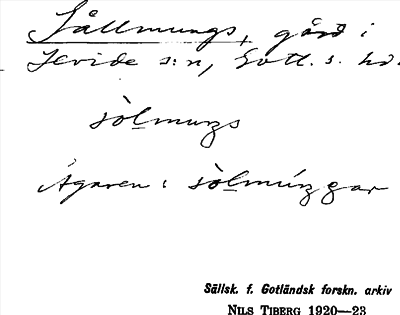 Sållmungs, gård i
Levide s:n, Gotl. s. hd.
sòlmuŋs
Ägaren: sòlmúŋgar
Sällsk. f. Gotländsk forskn. arkiv
NILS TIBERG 1920—23